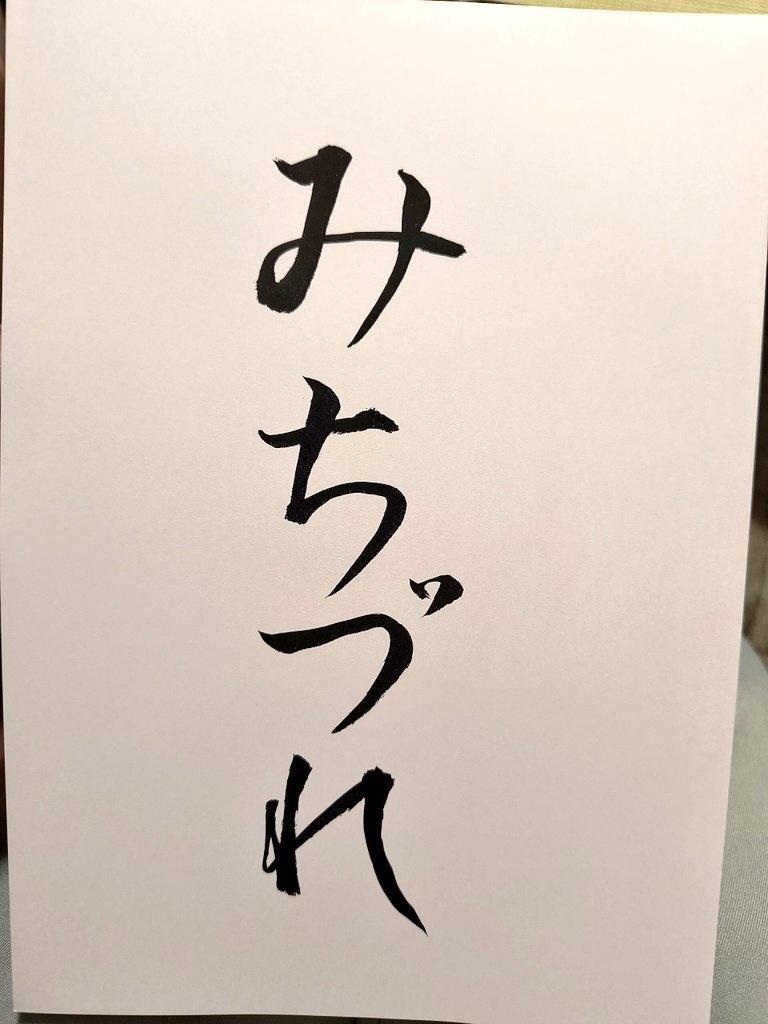 みちづれ